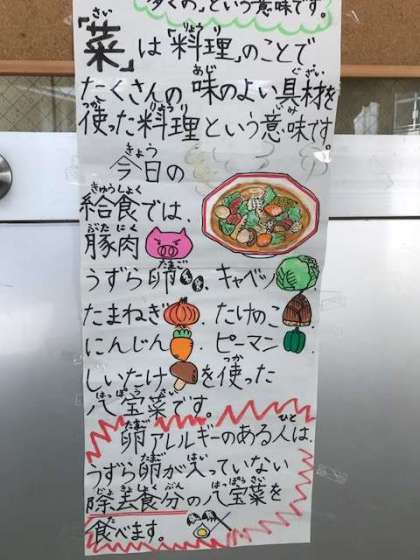 多くの」という意味です。
「菜」は「料理」のことで
たくさんの味のよい具材を
使った料理という意味です。
今日の
給食では、
豚肉
うずら卵、キャベツ
たまねぎ、たけのこ、
にんじん、ピーマン、
しいたけを使った
八宝菜です。
卵アレルギーのある人は、
うずら卵が入っていない
除去食分の八宝菜を
食べます。